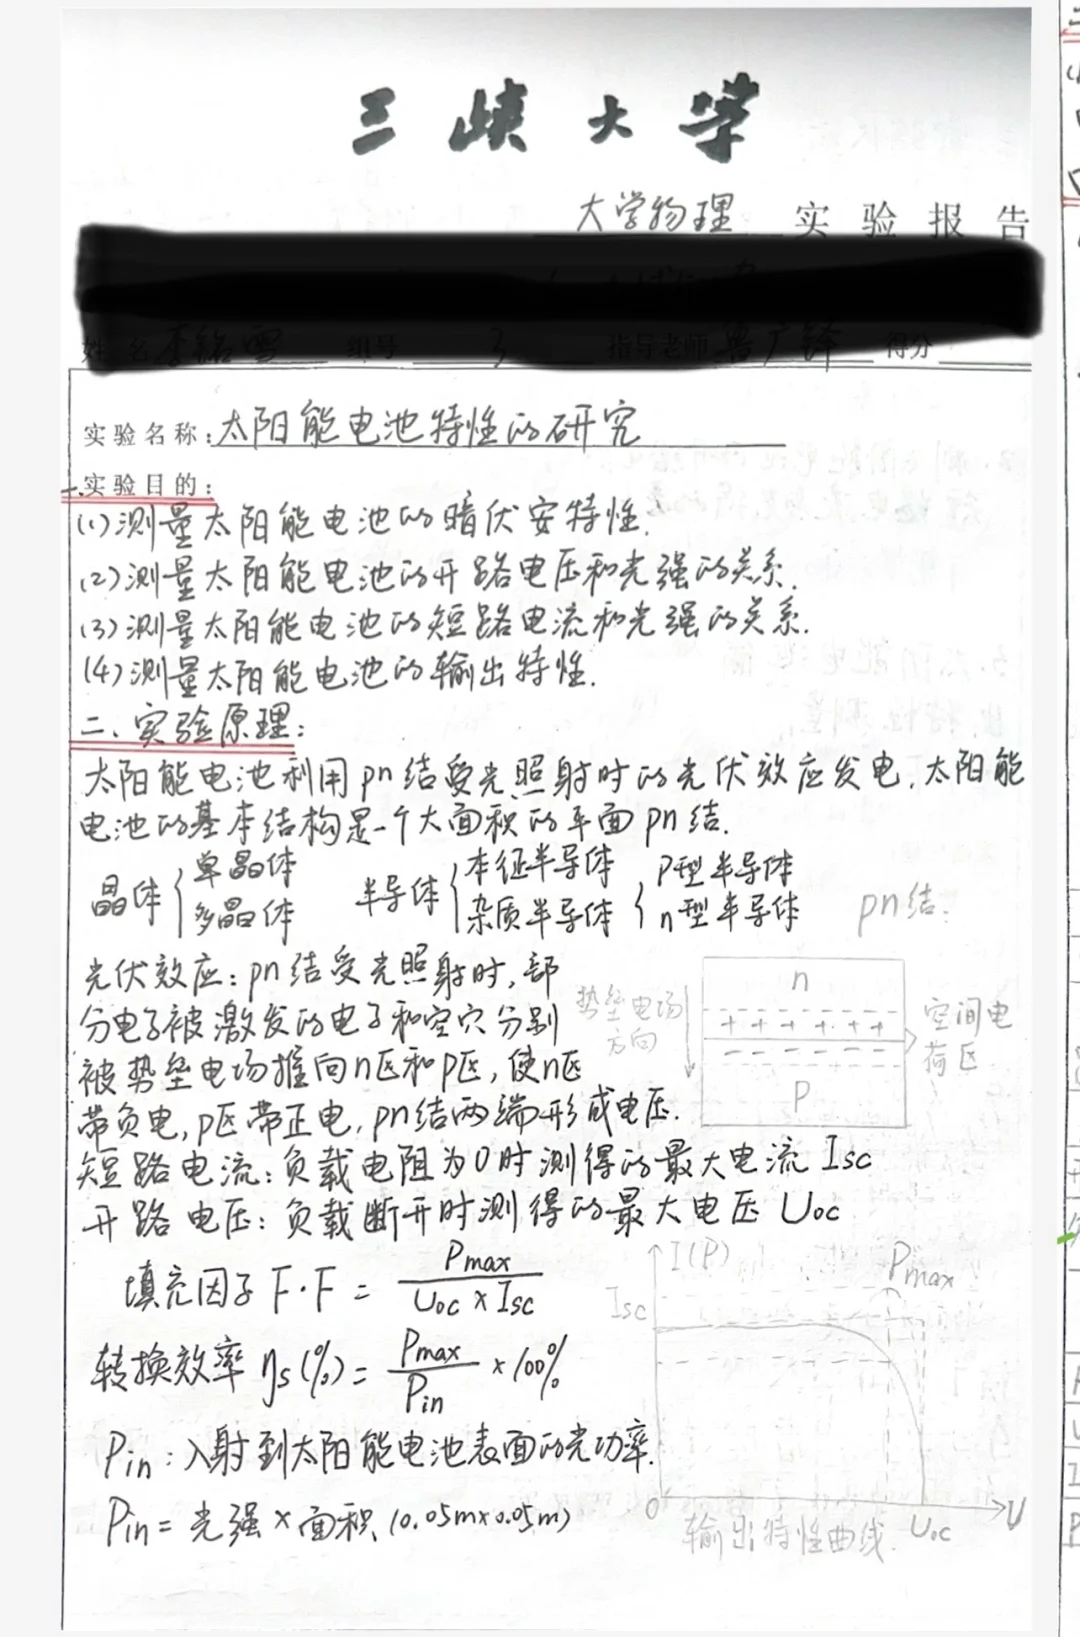 三峡大学
大学物理 实验报告
姓名 组号 3 指导老师 得分
实验名称:太阳能电池特性的研究
一.实验目的:
(1)测量太阳能电池的暗伏安特性.
(2)测量太阳能电池的开路电压和光强的关系.
(3)测量太阳能电池的短路电流和光强的关系.
(4)测量太阳能电池的输出特性.
二、实验原理:
太阳能电池利用pn结受光照射时的光伏效应发电,太阳能
电池的基本结构是一个大面积的平面pn结.
晶体{单晶体 多晶体 半导体{本征半导体 杂质半导体{P型半导体 n型半导体 pn结:
光伏效应:pn结受光照射时,部
分电子被激发的电子和空穴分别
被势垒电场推向n区和P区,使n区
带负电,P区带正电,pn结两端形成电压.
势垒电场
方向
n
+ + + + + +
- - - - - - -
P
空间电
荷区
短路电流:负载电阻为0时测得的最大电流 Isc
开路电压:负载断开时测得的最大电压 Uoc
填充因子 F·F = Pmax / Uoc × Isc
转换效率 ηs(%) = Pmax / Pin × 100%
Pin:入射到太阳能电池表面的光功率.
Pin = 光强 × 面积(0.05m×0.05m)
I(P)
Pmax
Isc
0
Uoc
U
输出特性曲线.